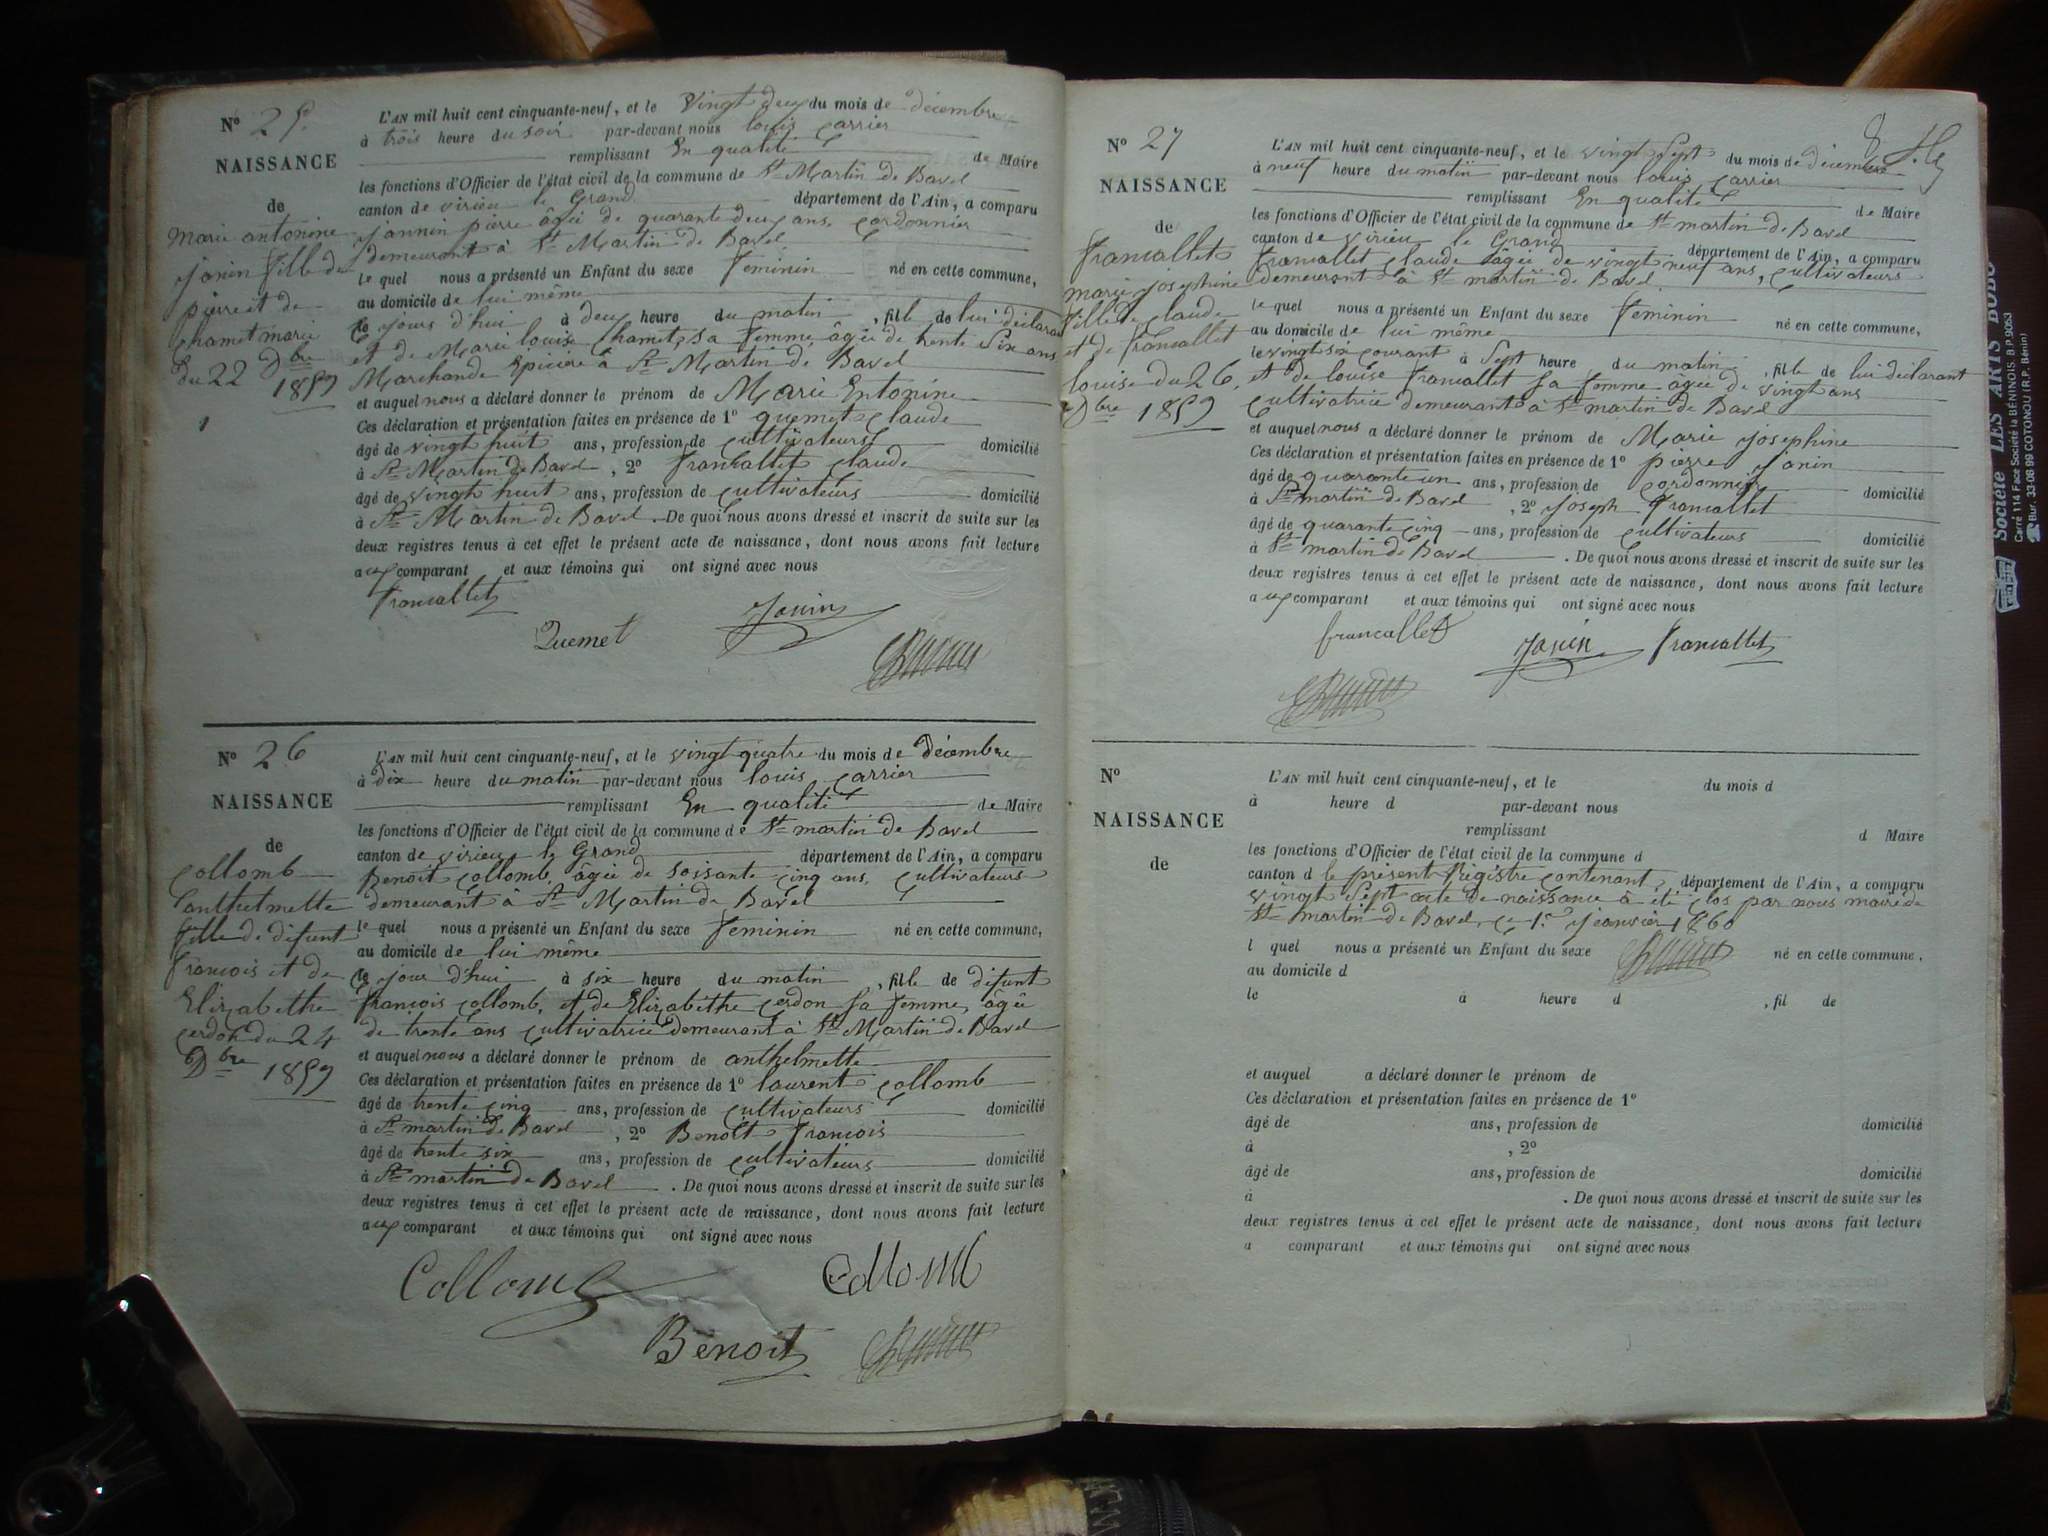 N° 25.
NAISSANCE
de
marie antonine
Janin fille de
pierre et de
chamet marie
Du 22 Dbre
1859
L'AN mil huit cent cinquante-neuf, et le Vingt deux du mois de décembre
à trois heure du soir par-devant nous louis Carrier
remplissant En qualité de Maire
les fonctions d'Officier de l'état civil de la commune de St Martin de Bavel
canton de virieu le Grand département de l'Ain, a comparu
Jannin pierre âgée de quarante deux ans, Cordonnier
demeurant à St Martin de Bavel
le quel nous a présenté un Enfant du sexe Feminin né en cette commune,
au domicile de lui même
le jours d'hui à deux heure du matin, fille de lui déclarant
et de Marie louise Chamet, sa femme, âgée de trente Six ans
Marchande Epiciere à St Martin de Bavel
et auquel nous a déclaré donner le prénom de Marie Entonine
Ces déclaration et présentation faites en présence de 1° quemet Claude
âgé de vingt huit ans, profession de Cultivateurs domicilié
à St Martin de Bavel, 2° Francallet Claude
âgé de vingt huit ans, profession de Cultivateurs domicilié
à St Martin de Bavel. De quoi nous avons dressé et inscrit de suite sur les
deux registres tenus à cet effet le présent acte de naissance, dont nous avons fait lecture
aux comparant et aux témoins qui ont signé avec nous
Francallet
Quemet Janin
N° 26
NAISSANCE
de
Collomb
anthelmette
fille de défunt
François et de
Elizabethe
Cerdon du 24
Dbre 1859
L'AN mil huit cent cinquante-neuf, et le vingt quatre du mois de Décembre
à dix heure du matin par-devant nous louis Carrier
remplissant En qualité de Maire
les fonctions d'Officier de l'état civil de la commune de St martin de Bavel
canton de virieu le Grand département de l'Ain, a comparu
Benoit Collomb, âgée de soissante cinq ans, Cultivateurs
demeurant à St Martin de Bavel
le quel nous a présenté un Enfant du sexe Feminin né en cette commune,
au domicile de lui même
le jour d'hui à six heure du matin, fille de défunt
françois Collomb, et de Elizabethe Cerdon sa femme, âgée
de trente ans Cultivatrice demeurant à St Martin de Bavel
et auquel nous a déclaré donner le prénom de anthelmette
Ces déclaration et présentation faites en présence de 1° laurent Collomb
âgé de trente cinq ans, profession de Cultivateurs domicilié
à St martin de Bavel, 2° Benoit François
âgé de trente six ans, profession de Cultivateurs domicilié
à St martin de Bavel. De quoi nous avons dressé et inscrit de suite sur les
deux registres tenus à cet effet le présent acte de naissance, dont nous avons fait lecture
aux comparant et aux témoins qui ont signé avec nous
Collomb Collomb
Benoit
8
N° 27
NAISSANCE
de
Francallet
marie josephine
fille de claude
et de francallet
louise du 26
Dbre 1859
L'AN mil huit cent cinquante-neuf, et le vingt Sept du mois de décembre
à neuf heure du matin par-devant nous louis Carrier
remplissant En qualité de Maire
les fonctions d'Officier de l'état civil de la commune de St martin de Bavel
canton de virieu le Grand département de l'Ain, a comparu
Francallet Claude âgée de vingt neuf ans, Cultivateurs
demeurant à St martin de Bavel
le quel nous a présenté un Enfant du sexe Feminin né en cette commune,
au domicile de lui même
le vingt six courant à Sept heure du matin, fille de lui déclarant
et de louise Francallet sa femme âgée de vingt ans
Cultivatrice demeurant à St martin de Bavel
et auquel nous a déclaré donner le prénom de Marie Josephine
Ces déclaration et présentation faites en présence de 1° pierre Janin
âgé de quarante un ans, profession de Cordonnier domicilié
à St martin de Bavel, 2° joseph Francallet
âgé de quarante cinq ans, profession de Cultivateurs domicilié
à St martin de Bavel. De quoi nous avons dressé et inscrit de suite sur les
deux registres tenus à cet effet le présent acte de naissance, dont nous avons fait lecture
aux comparant et aux témoins qui ont signé avec nous
francallet Janin Francallet
N°
NAISSANCE
de
L'AN mil huit cent cinquante-neuf, et le du mois d
à heure d par-devant nous
remplissant d Maire
les fonctions d'Officier de l'état civil de la commune d
canton d le présent Régistre contenant, département de l'Ain, a comparu
vingt Sept acte de naissance à été clos par nous maire de
St martin de Bavel, ce 1er Jeanvier 1860
l quel nous a présenté un Enfant du sexe né en cette commune,
au domicile d
le à heure d , fil de
et auquel a déclaré donner le prénom de
Ces déclaration et présentation faites en présence de 1°
âgé de ans, profession de domicilié
à , 2°
âgé de ans, profession de domicilié
à . De quoi nous avons dressé et inscrit de suite sur les
deux registres tenus à cet effet le présent acte de naissance, dont nous avons fait lecture
a comparant et aux témoins qui ont signé avec nous
Société LES ARTS BOBO
Carré 1114 Face Société la BÉNINOIS. B.P. 9053
Bur. 33-08 99 COTONOU (R.P. Bénin)